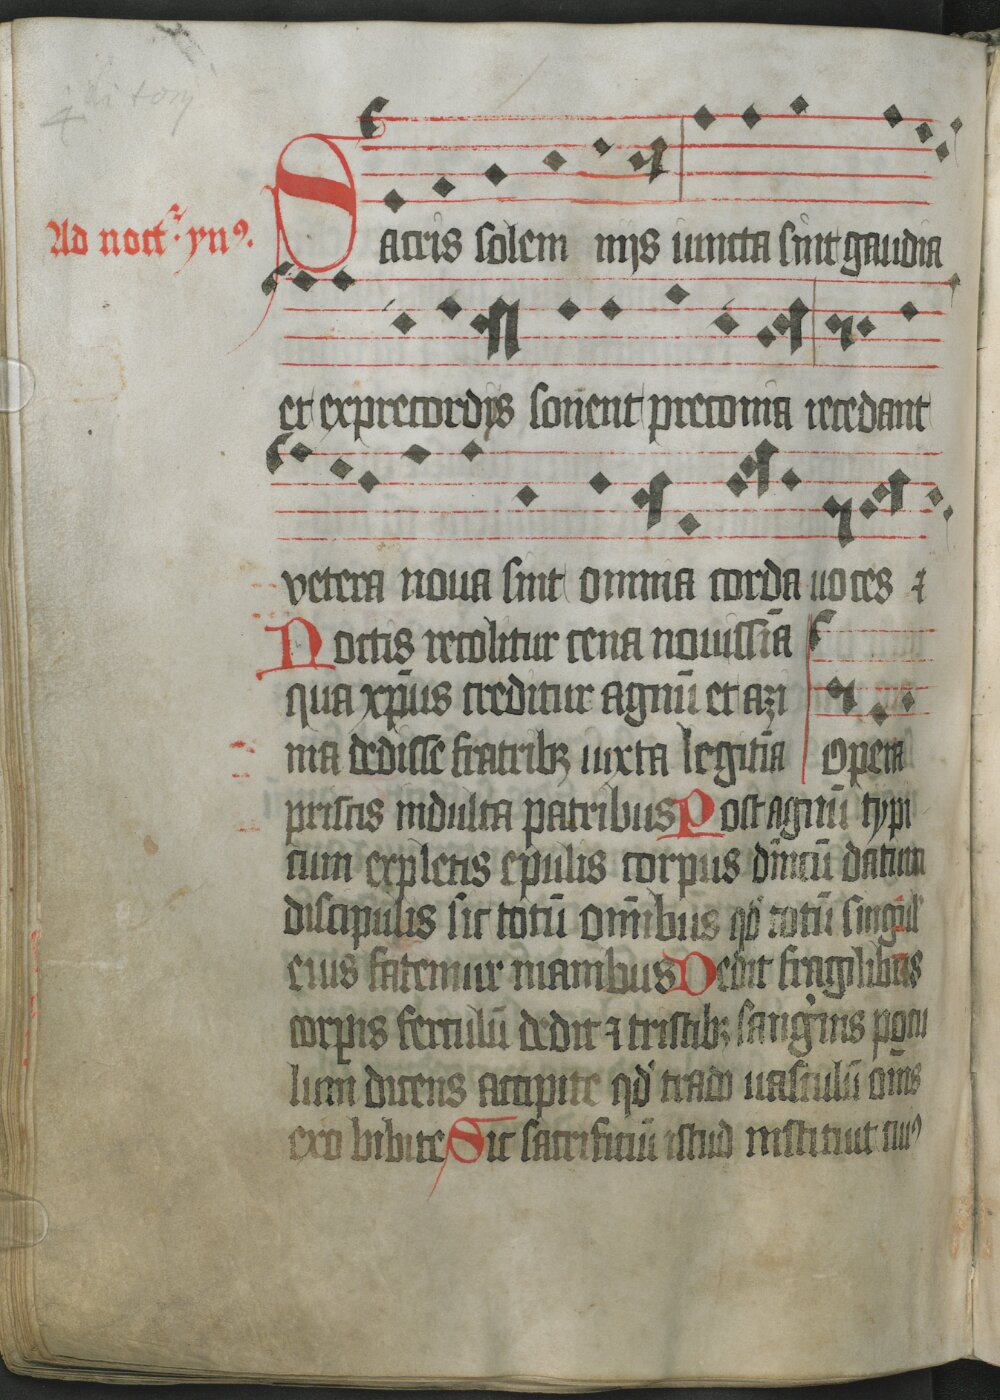 Ad noct̃ꝛ. yn⁹.
Sacris solem nijs iuncta sint gaudia
et exprecordijs sonent preconia recedant
vetera noua sint omnia corda uoces ⁊
Noctis recolitur cena nouissĩa
qua xp̃us creditur agnũ et azi
ma dedisse fratribꝫ iuxta legitĩa opera
priscis indulta patribus Post agnũ typi
cum expletis epulis corpus dñicũ datum
discipulis sic totũ om̃ibus qđ totũ singul'
eius fatemur manibus Dedit fragilibus
corꝑis ferculũ dedit ⁊ tristibꝫ sang'nis pocu
lum dicens accipite qđ trado uasculũ om̃s
exo bibite Sic sacrificiũ istud instituit cui⁹